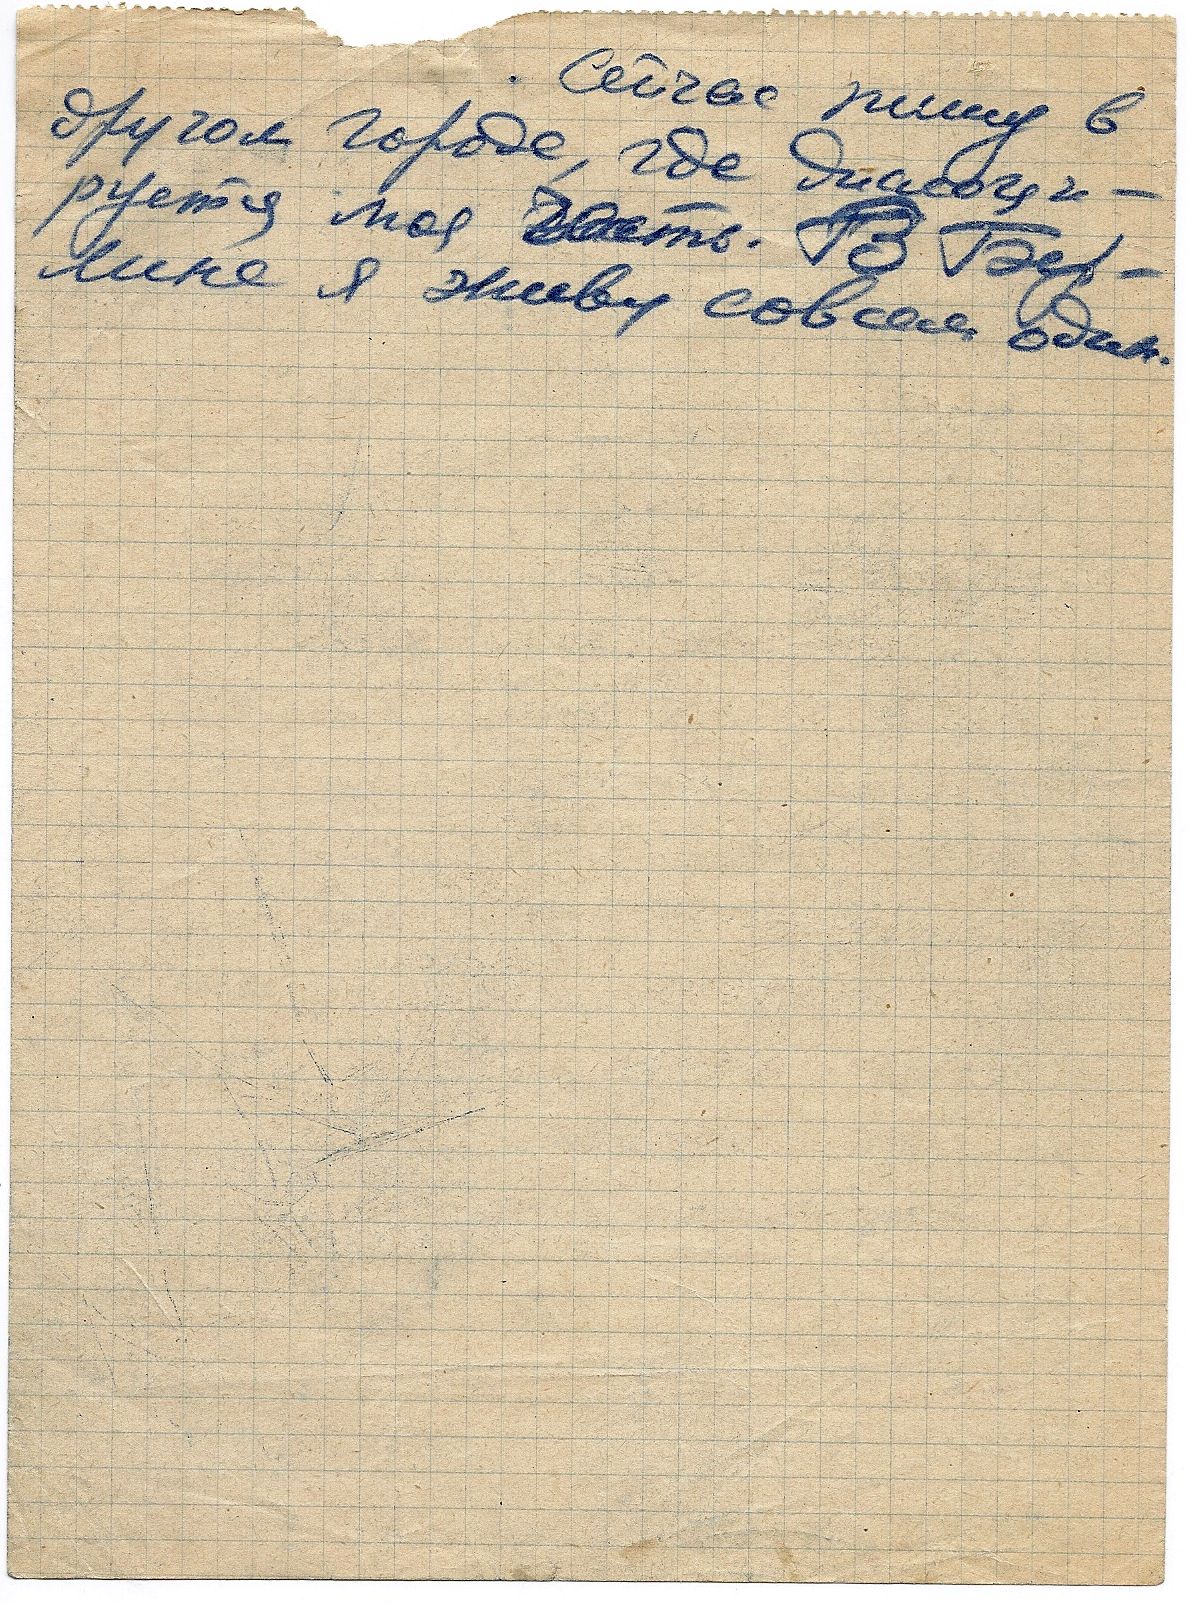 Сейчас пишу в
другом городе, где дислоци-
руется моя часть. В Бер-
лине я живу совсем один.